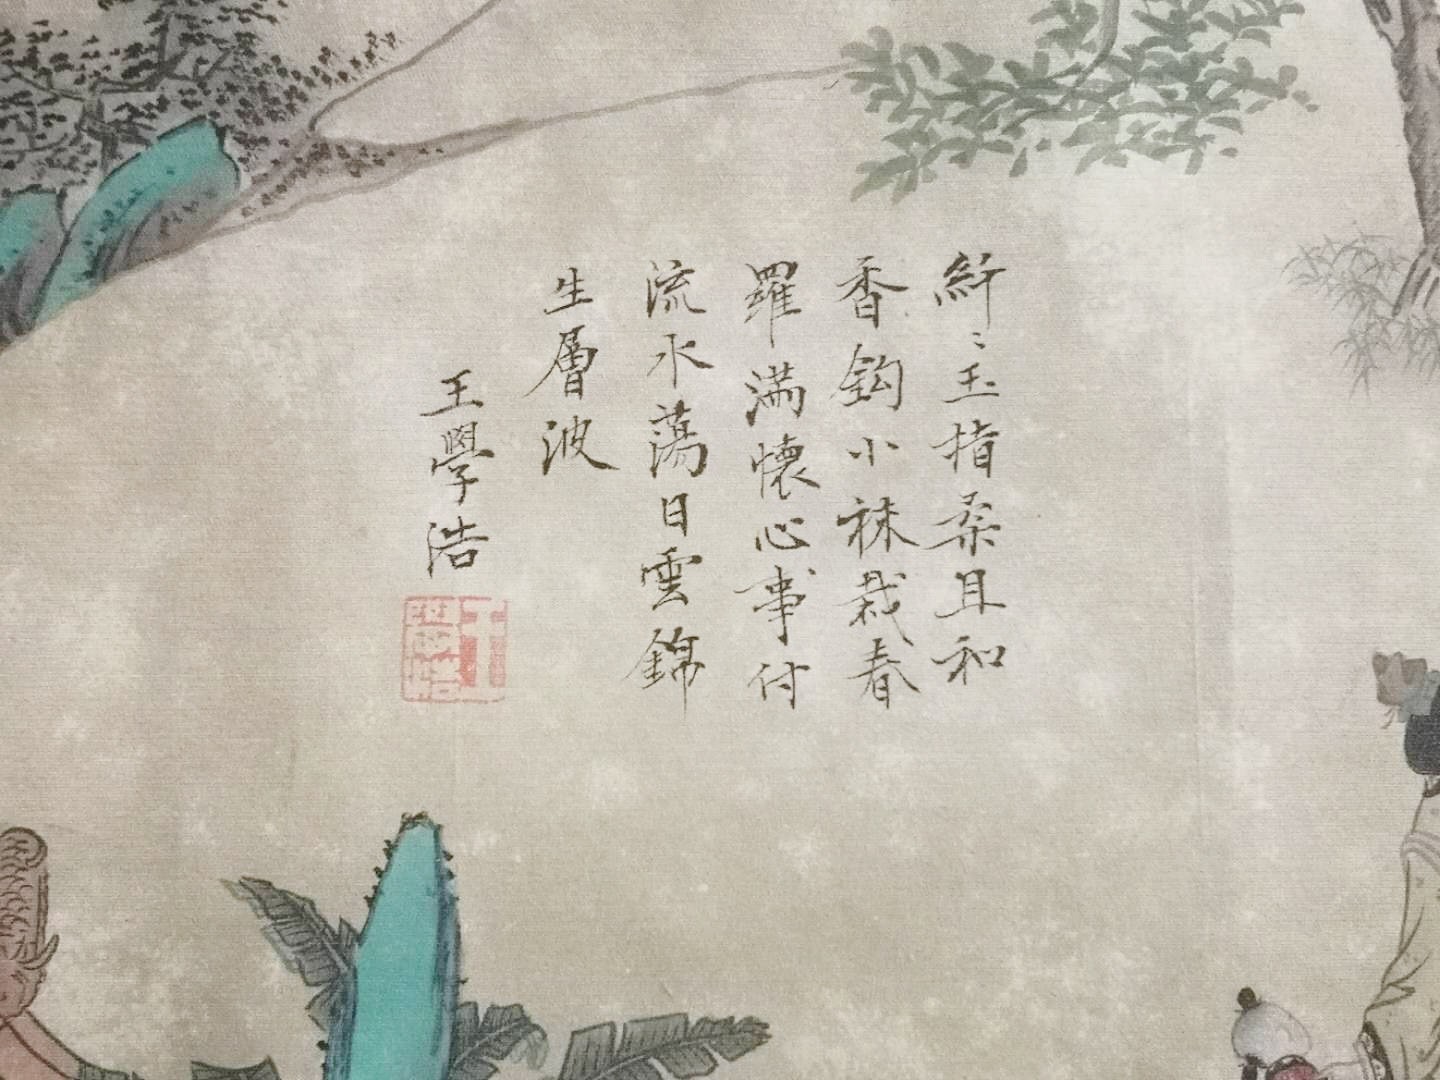 纖〻玉指柔且和
香鈎小袜裁春
羅滿懷心事付
流水蕩日雲錦
生層波
王學浩